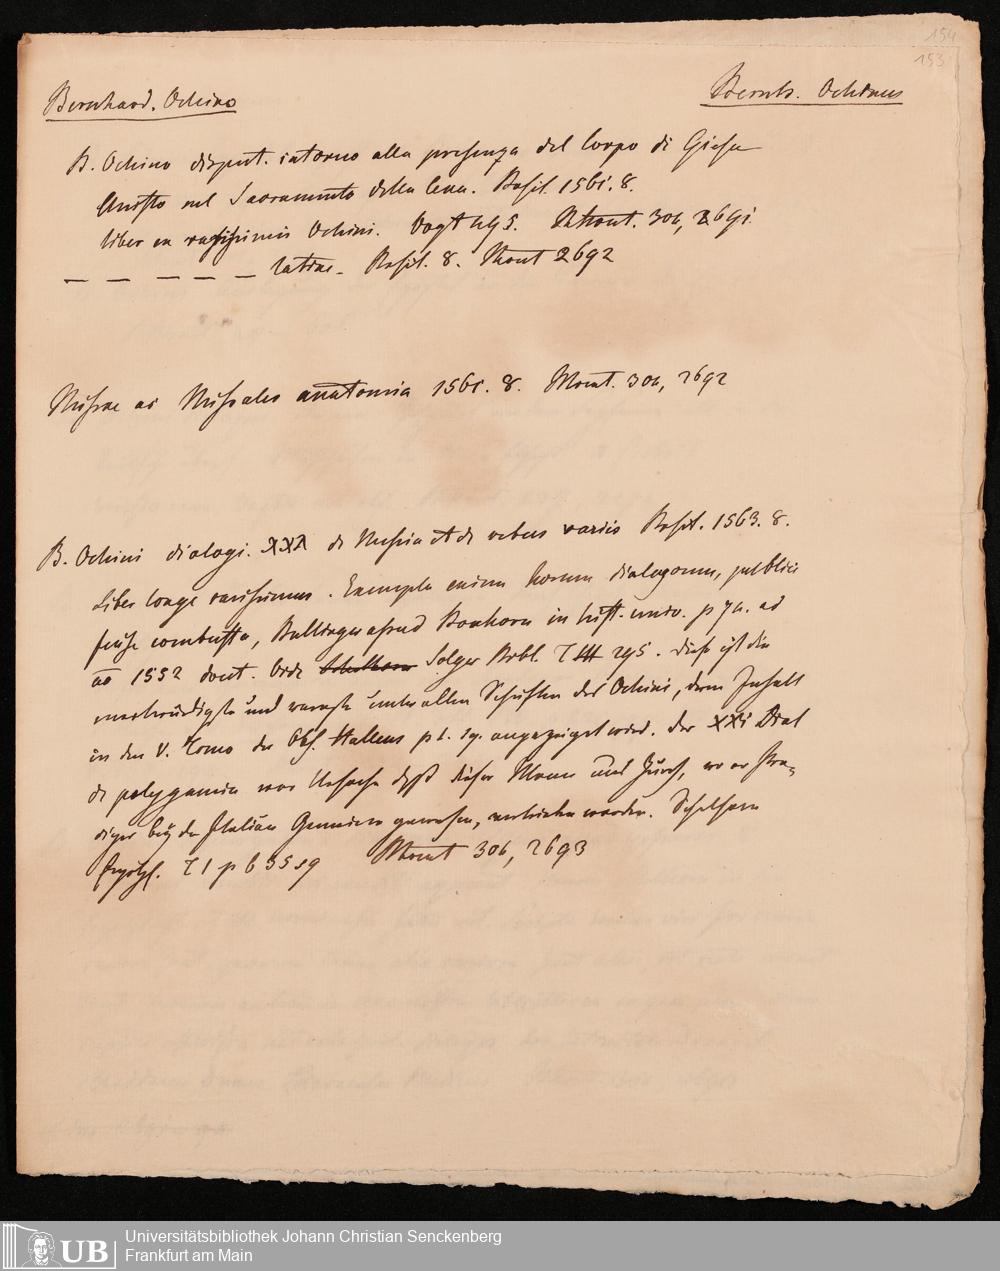 154
153
Bernhard. Ochino
Bernh. Ochinus
B. Ochino disput. intorno alla presenza del Corpo di Giesu
Christo nel Sacramento della Cena. Basil. 1561. 8.
liber ex rarissimis Ochini. Vogt 495. Mount. 306, 2691.
— — — — — latine. Basil. 8. Mount 2692
Missae ac Missales anatomia 1561. 8. Mount. 306, 2692
B. Ochini dialogi. XXX de Messia et de rebus variis Basil. 1563. 8.
Liber longe rarissimus. Exempla enim horum dialogorum, publice
fuisse combusta, Bullinger apud Boxhorn in hist. univ. p 74. ad
ao 1552 docet. Solger Bibl. T III 295. dieß ist die
merkwürdigste und rareste unter allen Schriften des Ochini, deren Inhalt
in den V. Tomo der Obs. Hallens p 1. sq. angezeiget wird. der XXI Dial
de polygamia war Ursache daß dieser Mann aus Zürch, wo er Pre-
diger bey der Italiän Gemeine gewesen, vertrieben worden. Schelhorn
Ergötzl. T 1 p 635 sq Mount 306, 2693
UB
Universitätsbibliothek Johann Christian Senckenberg
Frankfurt am Main